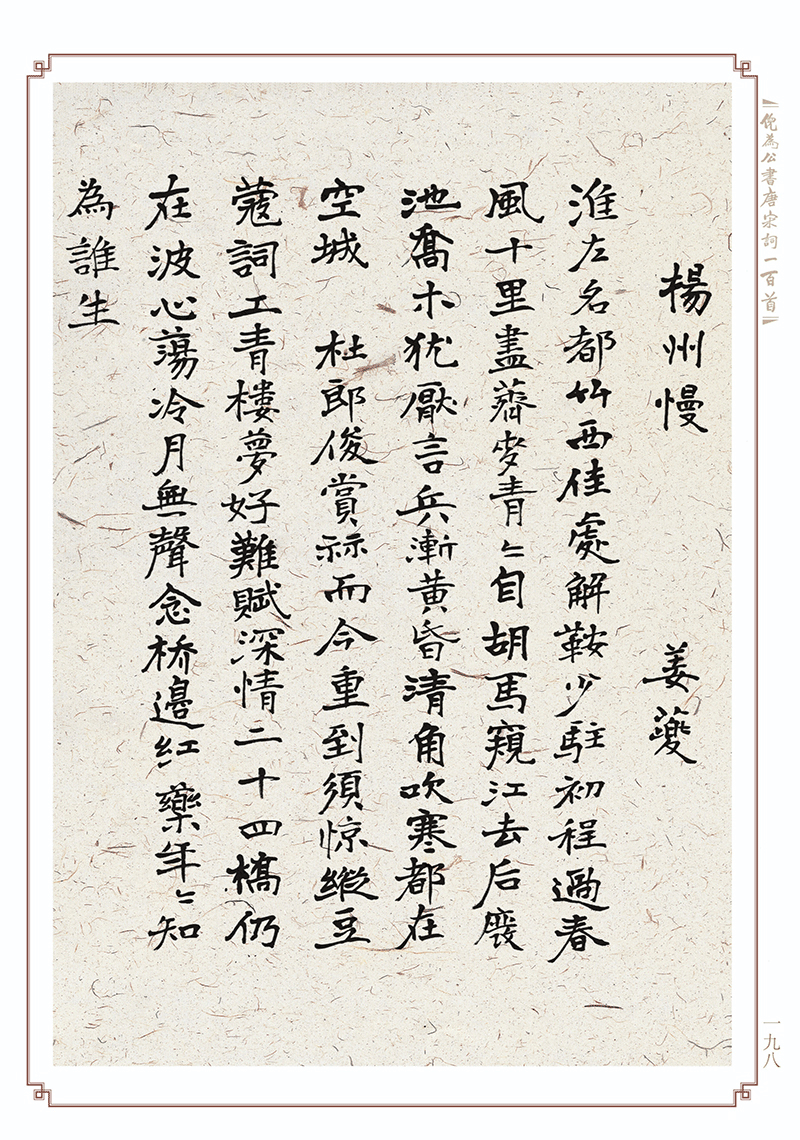 倪為公書唐宋詞一百首
揚州慢 姜夔
淮左名都竹西佳處解鞍少駐初程過春
風十里盡薺麥青々自胡馬窺江去后廢
池喬木犹厭言兵漸黄昏清角吹寒都在
空城 杜郎俊賞祘而今重到須惊縱豆
蔻詞工青樓夢好難賦深情二十四橋仍
在波心蕩冷月無聲念桥邊紅藥年々知
為誰生
一九八